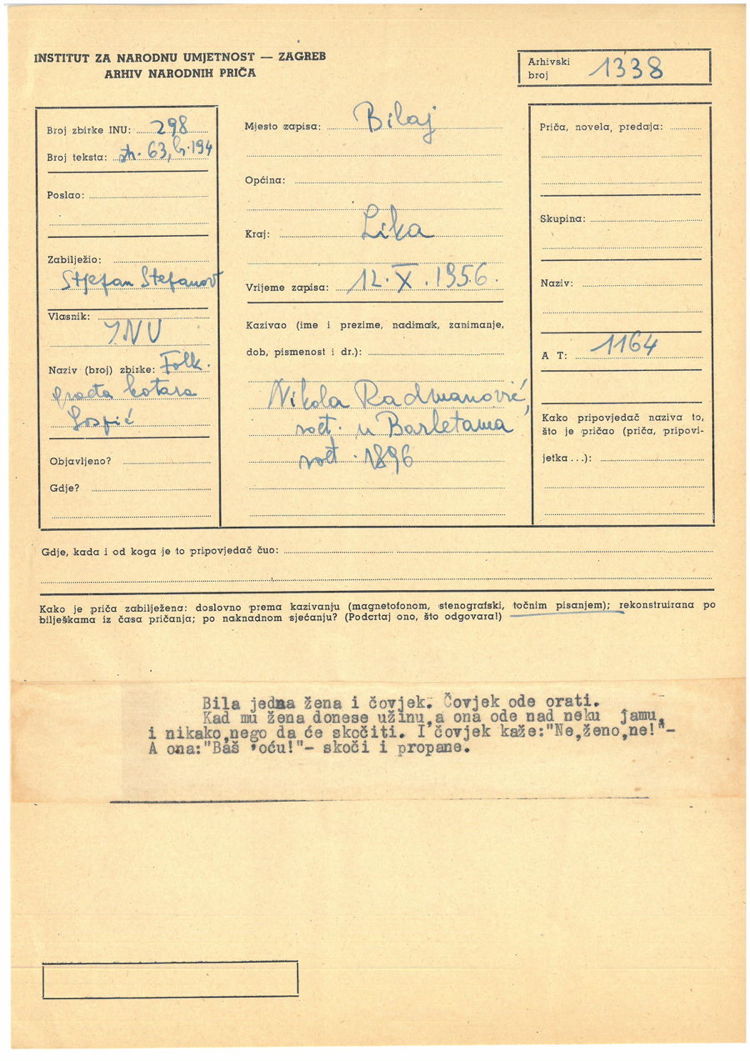 INSTITUT ZA NARODNU UMJETNOST — ZAGREB
ARHIV NARODNIH PRIČA
Arhivski
broj 1338
Broj zbirke INU: 298
Broj teksta: str. 63, br. 194
Poslao:
Zabilježio:
Stjefan Stefanov
Vlasnik:
INU
Naziv (broj) zbirke: Folk.
građa kotara
Gospić
Objavljeno?
Gdje?
Mjesto zapisa: Bilaj
Općina:
Kraj: Lika
Vrijeme zapisa: 12. X. 1956.
Kazivao (ime i prezime, nadimak, zanimanje,
dob, pismenost i dr.):
Nikola Radmanović,
rođ. u Barletama
rođ. 1896
Priča, novela, predaja:
Skupina:
Naziv:
A T: 1164
Kako pripovjedač naziva to,
što je pričao (priča, pripovi-
jetka...):
Gdje, kada i od koga je to pripovjedač čuo:
Kako je priča zabilježena: doslovno prema kazivanju (magnetofonom, stenografski, točnim pisanjem); rekonstruirana po
bilješkama iz časa pričanja; po naknadnom sjećanju? (Podcrtaj ono, što odgovara!)
Bila jedna žena i čovjek. Čovjek ode orati.
Kad mu žena donese užinu,a ona ode nad neku jamu,
i nikako,nego da će skočiti. I čovjek kaže:"Ne,ženo,ne!"-
A ona:"Baš 'oću!"- skoči i propane.